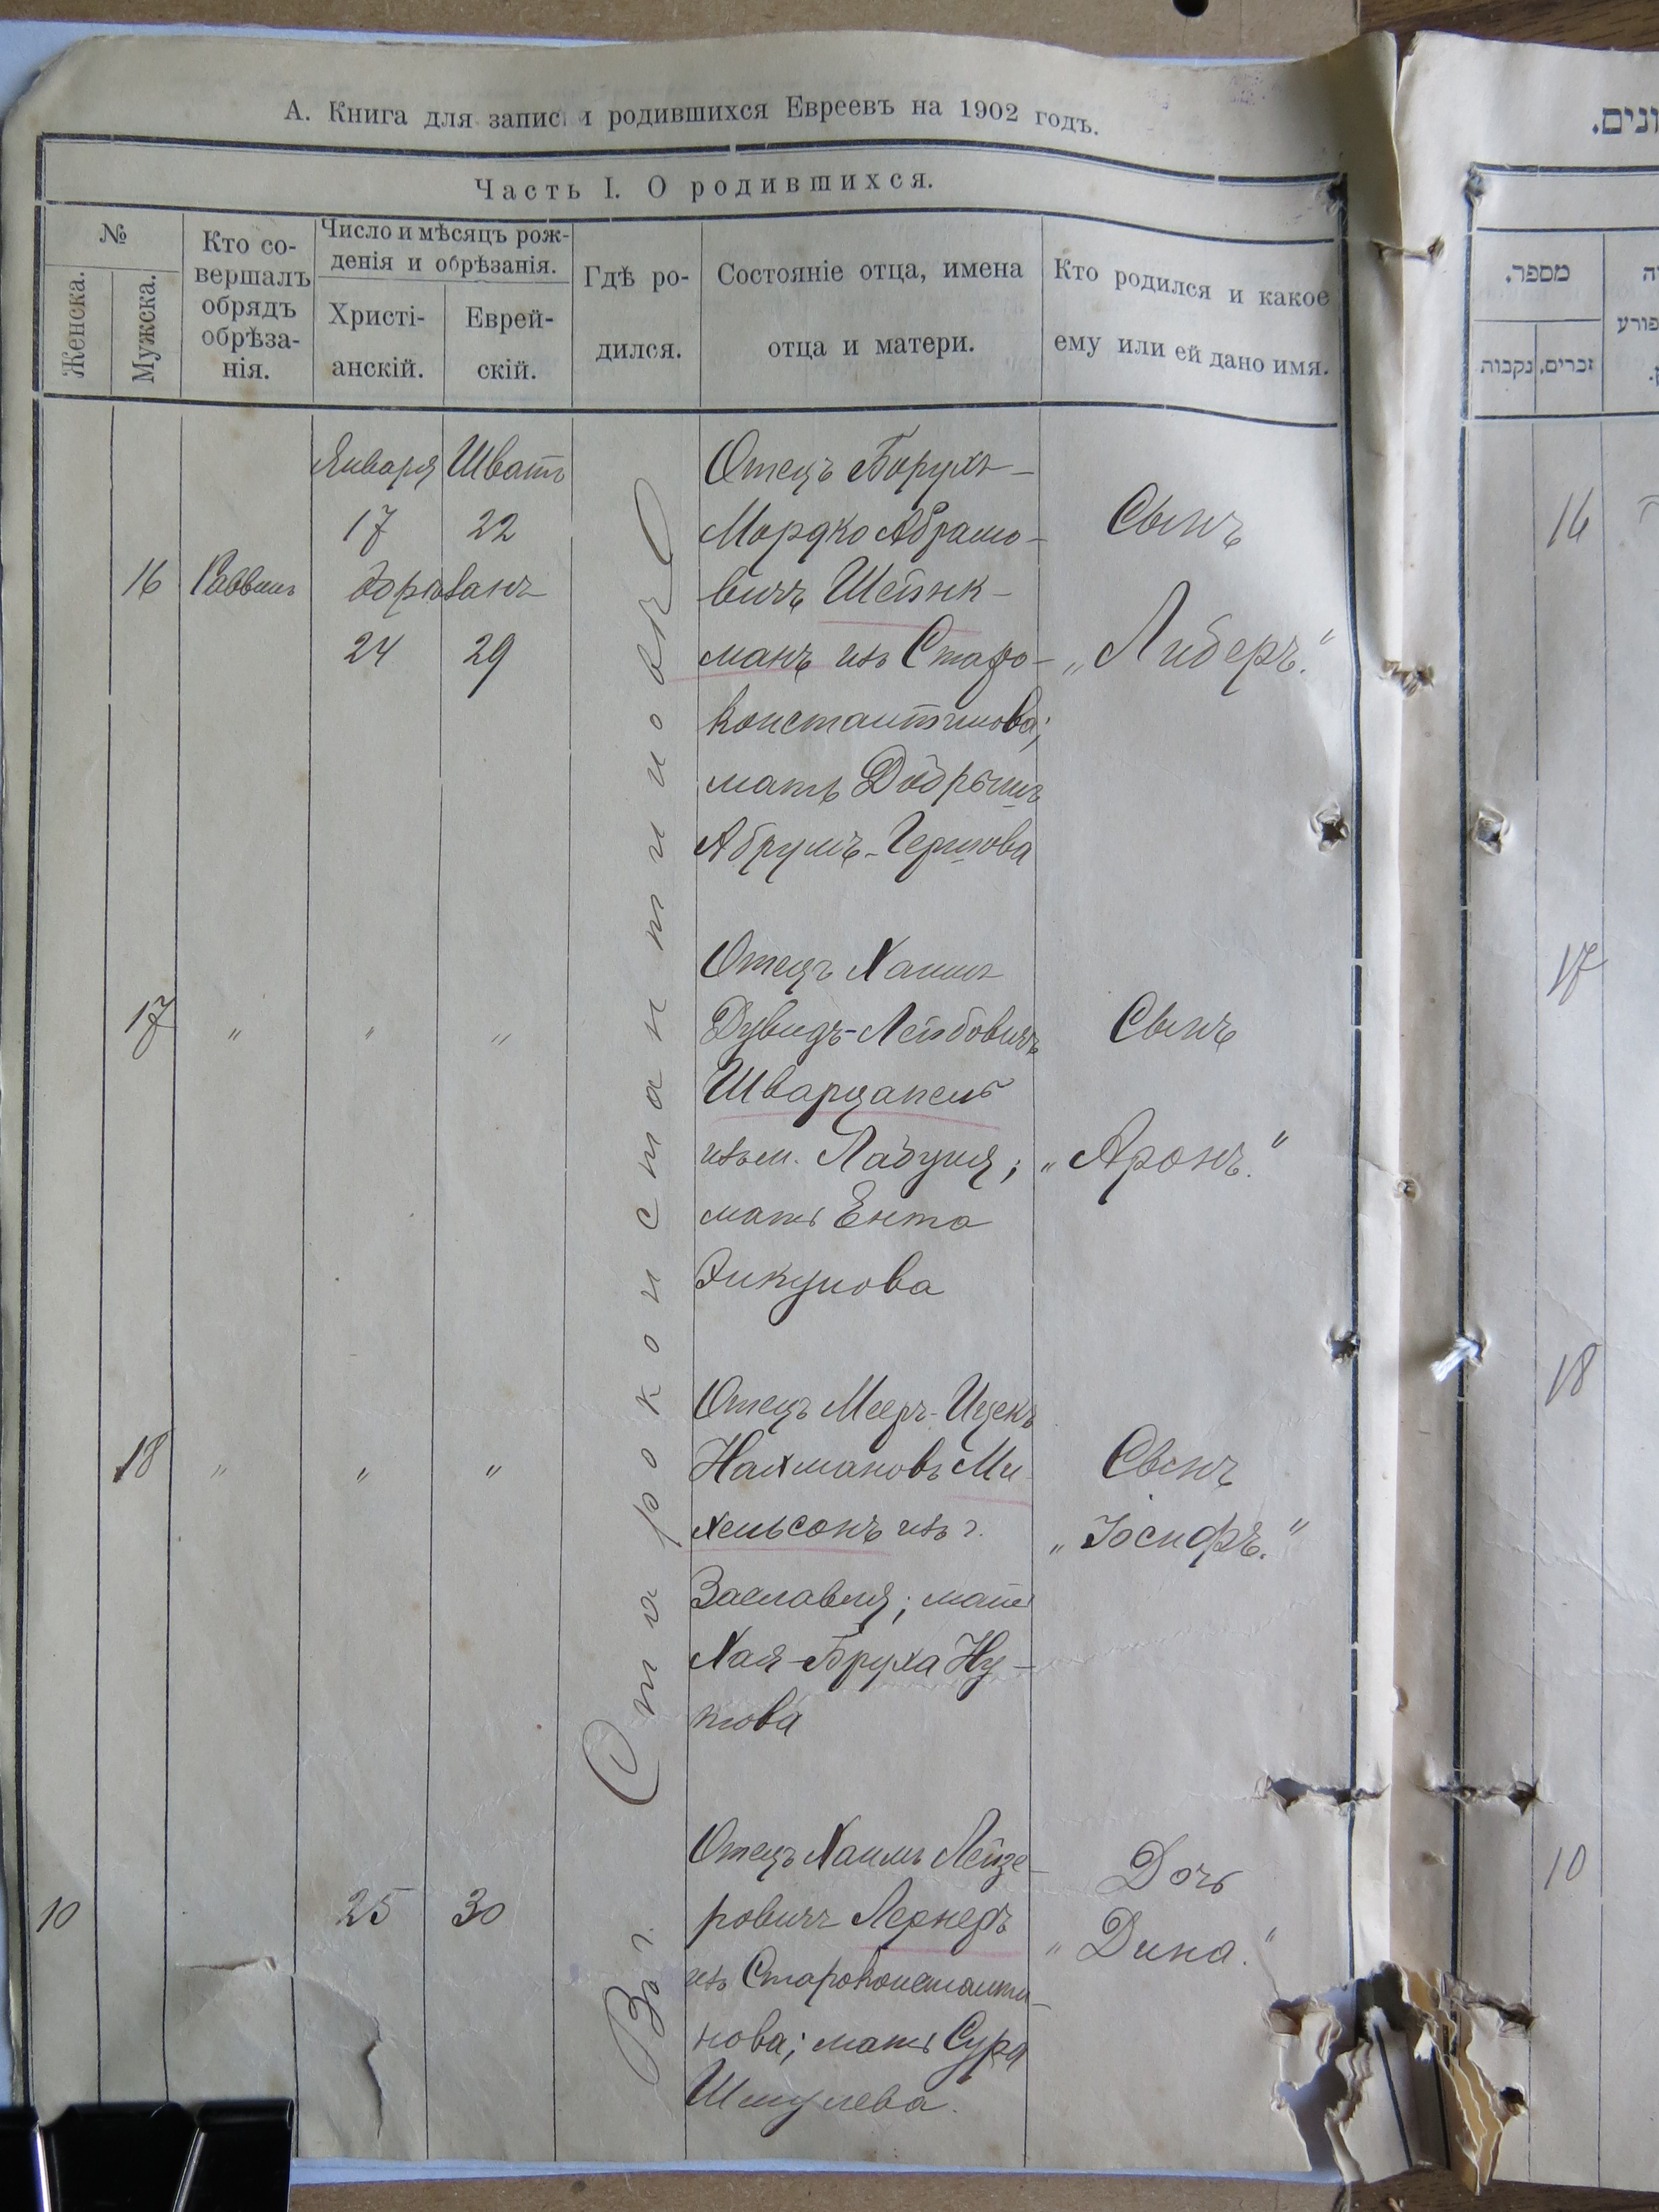 А. Книга для записи родившихся Евреевъ на 1902 годъ.
Часть I. О родившихся.
№
Женска.
Мужска.
Кто со-
вершалъ
обрядъ
обрѣза-
нія.
Число и мѣсяцъ рож-
денія и обрѣзанія.
Христі-
анскій.
Еврей-
скій.
Гдѣ ро-
дился.
Состояніе отца, имена
отца и матери.
Кто родился и какое
ему или ей дано имя.
Января Шватъ
17 22
16 Раввинъ обрѣзанъ
24 29
Въ г. Староконстантиновѣ
Отецъ Борухъ-
Мордко Абрамо-
вичъ Шейнк-
манъ изъ Старо-
константинова;
мать Добрышъ
Абрумъ-Гершова
Сынъ
„Либеръ."
17 " " "
Отецъ Хаимъ
Дувидъ-Лейбовичъ
Шварцапель
изъ м. Лабуня;
мать Ента
Сынъ
„Аронъ."
18 " " "
Отецъ Мееръ-Ицекъ
Нахмановъ Ми
хельсонъ изъ г.
Заславля; мать
Хая-Бруха Ну-
Сынъ
„Іосифъ."
10 25 30
Отецъ Хаимъ Лейзе-
ровичъ Лернеръ
изъ Староконстанти-
нова; мать Сура
Шмулева.
Дочь
„Дина."
מספר.
זכרים,
נקבות
16
17
18
10